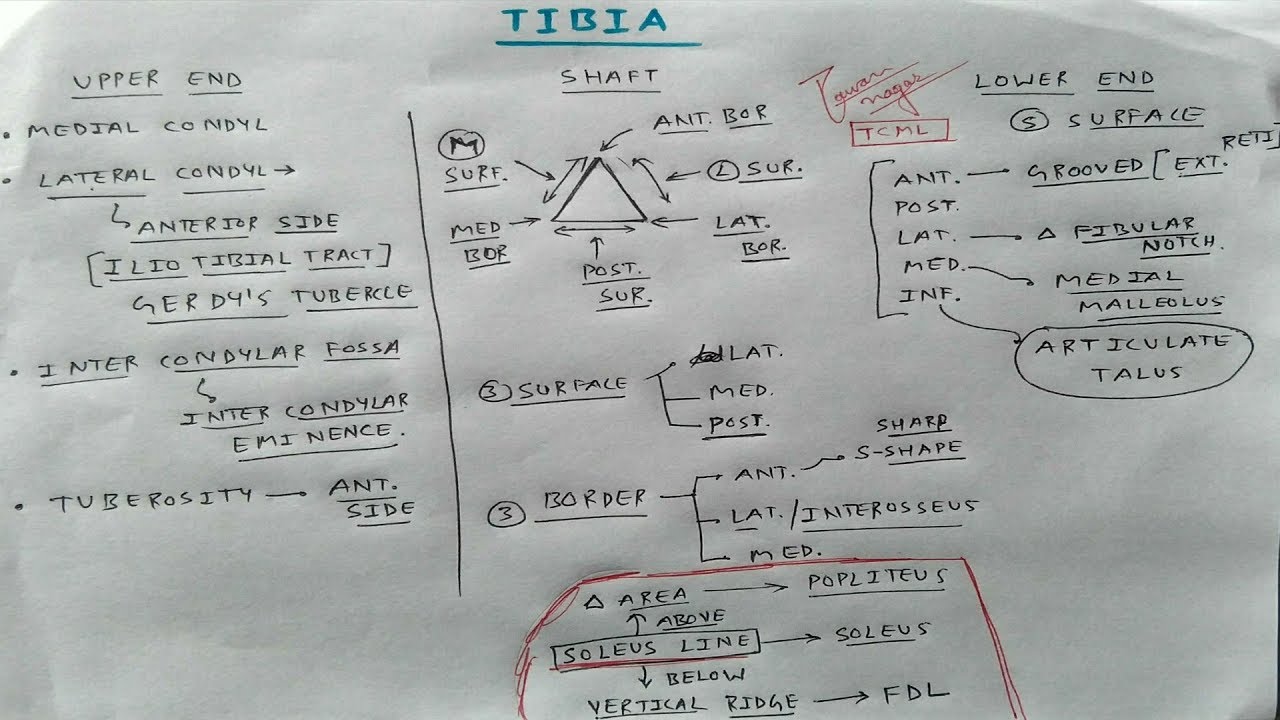 TIBIA
UPPER END
• MEDIAL CONDYL
• LATERAL CONDYL →
ANTERIOR SIDE
[ILIO TIBIAL TRACT]
GERDY'S TUBERCLE
• INTER CONDYLAR FOSSA
INTER CONDYLAR
EMINENCE.
• TUBEROSITY — ANT.
SIDE
SHAFT
ANT. BOR
M
SURF.
L SUR.
MED
BOR
LAT.
BOR.
POST.
SUR.
3 SURFACE
LAT.
MED.
POST.
3 BORDER
ANT.
SHARP
S-SHAPE
LAT. / INTEROSSEUS
MED.
△ AREA → POPLITEUS
↑ ABOVE
SOLEUS LINE → SOLEUS
↓ BELOW
VERTICAL RIDGE → FDL
Pawan
nagar
TCML
LOWER END
5 SURFACE
ANT. → GROOVED [EXT. RETI]
POST.
LAT. → △ FIBULAR
NOTCH.
MED. → MEDIAL
MALLEOLUS
INF.
ARTICULATE
TALUS